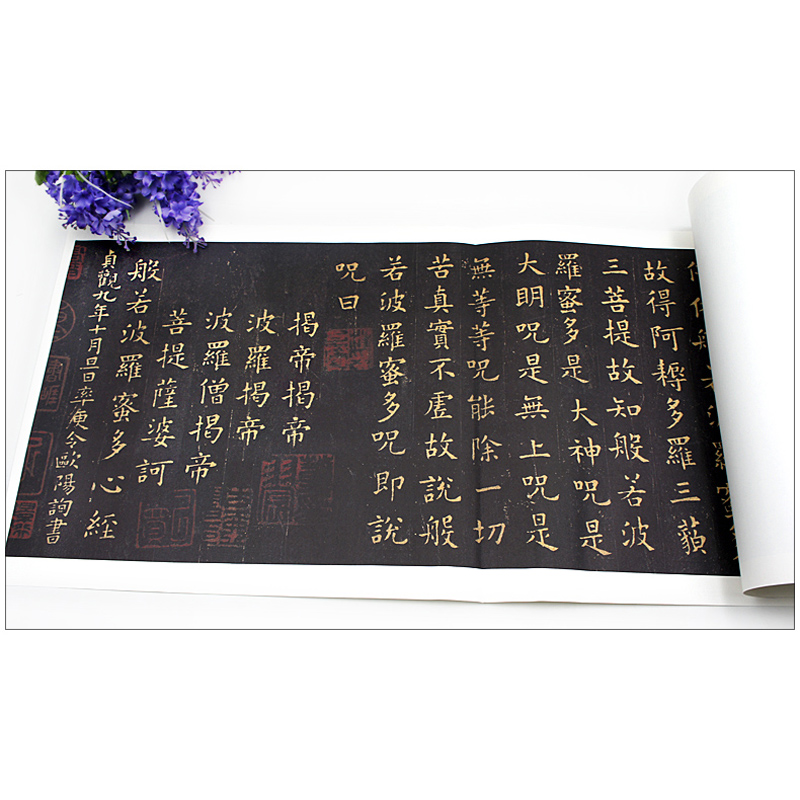 故得阿耨多羅三藐
三菩提故知般若波
羅蜜多是大神咒是
大明咒是無上咒是
無等等咒能除一切
苦真實不虛故說般
若波羅蜜多咒即說
咒曰
揭帝揭帝
波羅揭帝
波羅僧揭帝
菩提薩婆訶
般若波羅蜜多心經
貞觀九年十月旦日率更令歐陽詢書